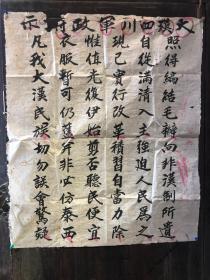 大漢四川軍政府示
照得編結毛辮向非漢制所遺
自從滿清入主強迫人民爲之
現已實行改革積習自當力除
惟值光復伊始剪否聽民便宜
衣服暫可仍舊并非必仿泰西
凡我大漢民族切勿誤會驚疑